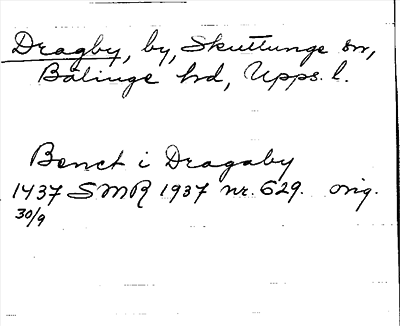 Dragby, by, Skuttunge sn,
Bälinge hd, Upps. l.
Benct i Dragaby
1437 SMR 1937 nr. 629. orig.
30/9